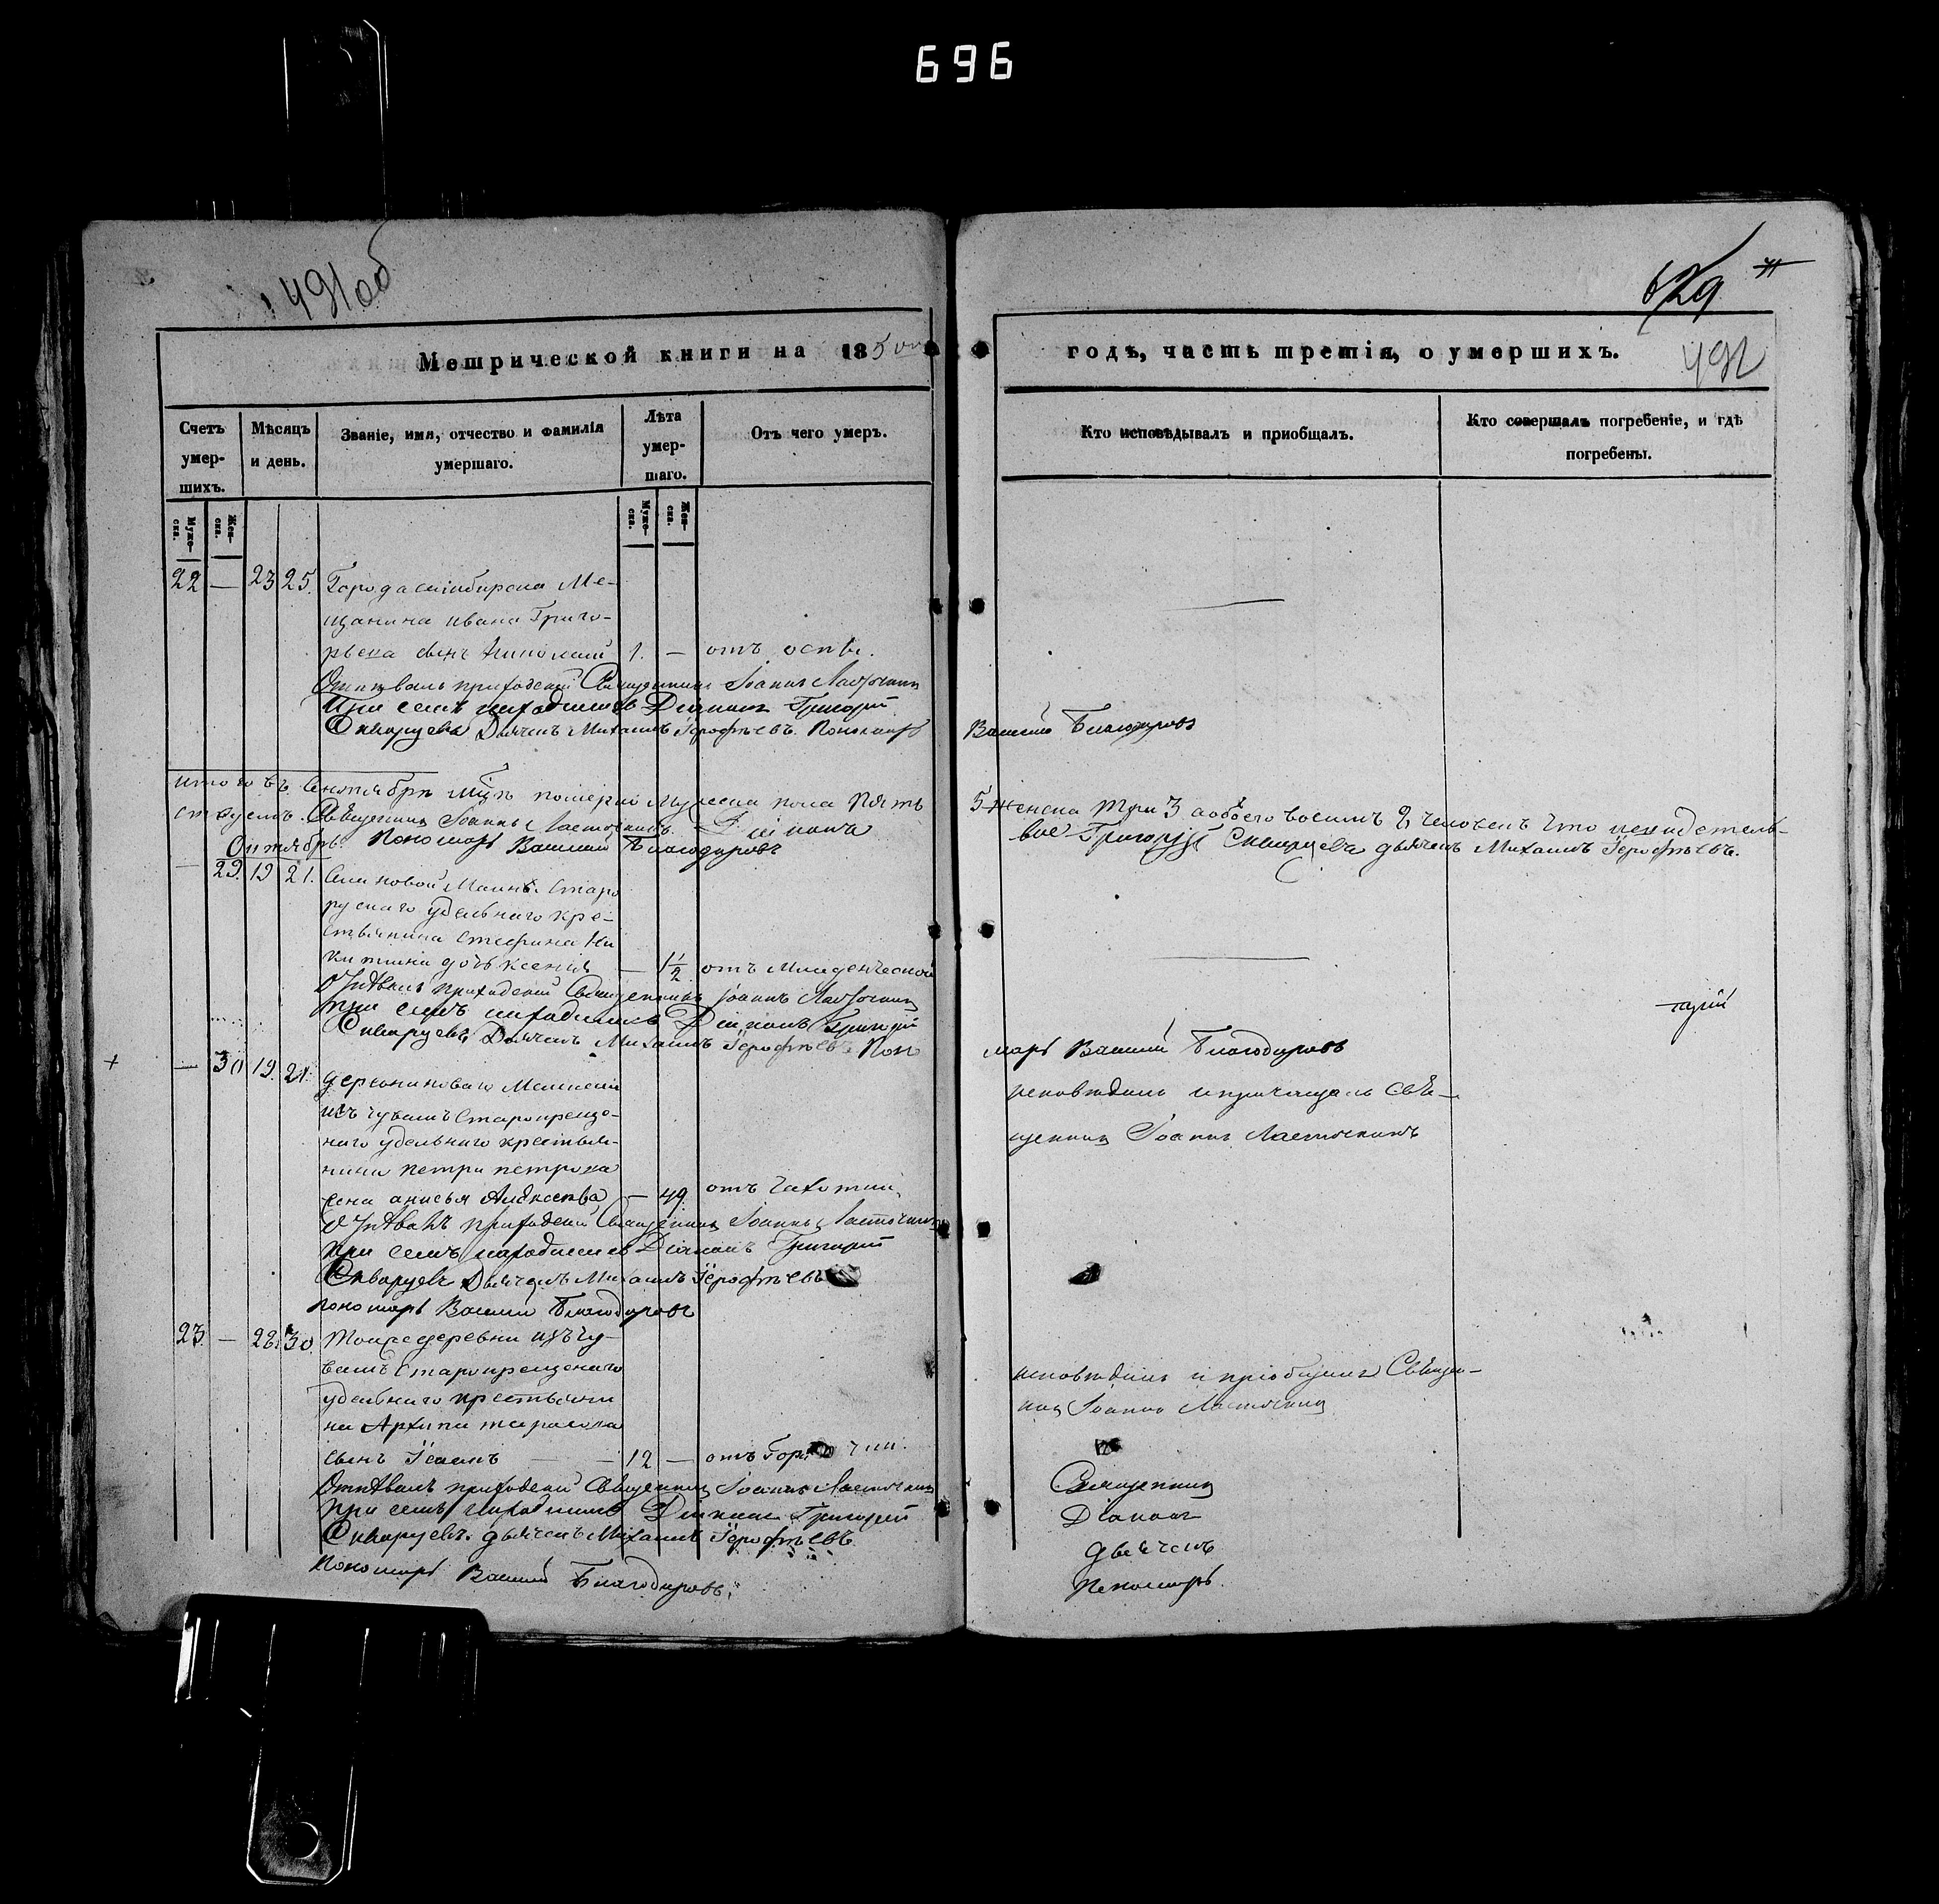 696
491об
629
492
Метрической книги на 1850
годъ, часть третія, о умершихъ.
Счетъ умер-шихъ.
Мѣсяцъ и день.
Званіе, имя, отчество и фамилія умершаго.
Лѣта умер-шаго.
Отъ чего умеръ.
Кто исповѣдывалъ и приобщалъ.
Кто совершалъ погребеніе, и гдѣ погребены.
Муже-ска.
Жен-ска.
Муже-ска.
Жен-ска.
22 — 23 25. Города симбирска Ме-
щанина ивана Григо-
рьева сынъ Николай 1. — отъ оспы.
Отпѣвалъ приходскій Священникъ Іоаннъ Ласточкинъ
При семъ находились Діаконъ Григорій
Скворцевъ Дьячекъ Михаилъ Іерофѣевъ Пономарь Василий Благодаровъ
итого въ Сентябрѣ мцѣ померло Мужеска пола Пять 5 женска три 3 а обоего восемь 8 человекъ что и свидетель-
ствуемъ. Священникъ Іоаннъ Ласточкинъ. Діаконъ Григорій Скворцевъ дьячекъ Михаилъ Іерофѣевъ.
Пономарь Василий Благодаровъ
Октябрь
— 29. 19 21. Села новой Маины Старо
рускаго удельнаго кре-
стьянина стефана Ни
китина дочь ксенія — 1 1/2 отъ младенческой
Отпѣвалъ приходскій Священникъ Іоаннъ Ласточкинъ
при семъ находились Діаконъ Григорій
Скворцевъ Дьячекъ Михаилъ Іерофѣевъ Поно
марь Василий Благодаровъ
+ — 30 19. 21.
изъ чувашъ старокреще-
наго удельнаго крестья-
нина петра петрова
жена анисья Алексѣева — 49. отъ чахотки,
исповѣдалъ и причащалъ Свя-
щенникъ Іоаннъ Ласточкинъ
Отпѣвалъ приходскій Священникъ Іоаннъ Ласточкинъ
при семъ находились Діаконъ Григорій
Скворцевъ Дьячекъ Михаилъ Іерофѣевъ
пономарь Василий Благодаровъ
23. — 28. 30. Тойже деревни изъ чу-
вашъ старокрещенаго
удельнаго крестьяни
на Архипа тарасова
сынъ Іоаннъ — 12 — отъ горячки.
исповѣдалъ и пріобщилъ Священ-
никъ Іоаннъ Ласточкинъ
Отпѣвалъ приходскій Священникъ Іоаннъ Ласточкинъ
при семъ находились Діаконъ Григорій
Скворцевъ. дьячекъ Михаилъ Іерофѣевъ
Пономарь Василий Благодаровъ.
Священникъ
Діаконъ
дьячекъ
пономарь.